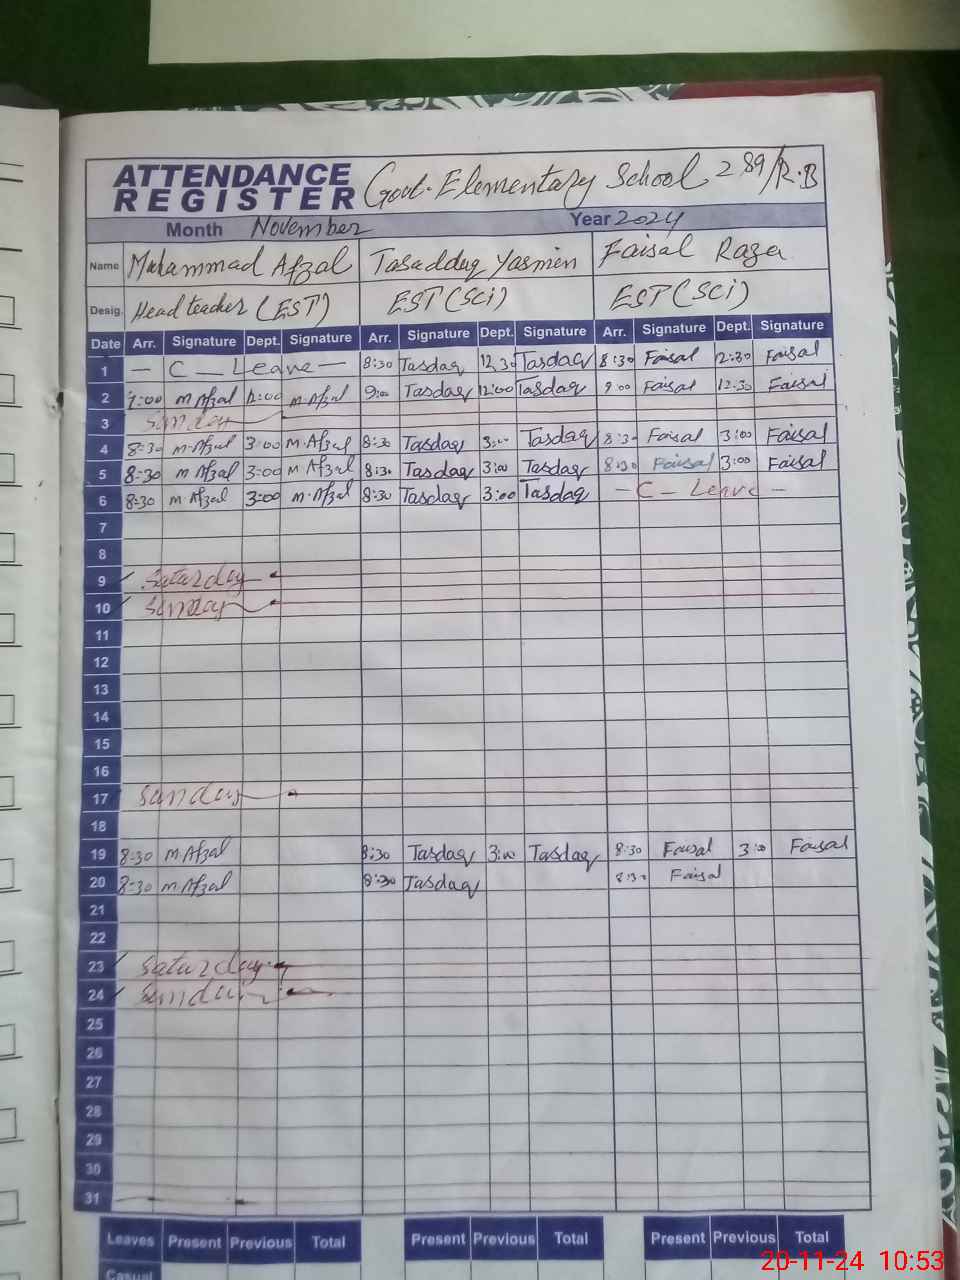 ATTENDANCE REGISTER Govt. Elementary School 289/R.B
Month November Year 2024
Name Muhammad Afzal Tasaddaq Yasmien Faisal Raza
Desig. Head teacher (EST) EST (SCi) EST (SCi)
Date Arr. Signature Dept. Signature Arr. Signature Dept. Signature Arr. Signature Dept. Signature
1 — C — Leave — 8:30 Tasdaq 12.30 Tasdaq 8:30 Faisal 12:30 Faisal
2 9:00 M.Afzal 12:00 M.Afzal 9:00 Tasdaq 12:00 Tasdaq 9:00 Faisal 12:30 Faisal
3 Sunday
4 8:30 M.Afzal 3:00 M.Afzal 8:30 Tasdaq 3:00 Tasdaq 8:30 Faisal 3:00 Faisal
5 8:30 M.Afzal 3:00 M.Afzal 8:30 Tasdaq 3:00 Tasdaq 8:30 Faisal 3:00 Faisal
6 8:30 M.Afzal 3:00 M.Afzal 8:30 Tasdaq 3:00 Tasdaq — C — Leave —
7
8
9 Saturday
10 Sunday
11
12
13
14
15
16
17 Sunday
18
19 8:30 M.Afzal 8:30 Tasdaq 3:00 Tasdaq 8:30 Faisal 3:00 Faisal
20 8:30 M.Afzal 8:30 Tasdaq 8:30 Faisal
21
22
23 Saturday
24 Sunday
25
26
27
28
29
30
31
Leaves Present Previous Total Present Previous Total Present Previous Total
Casual
20-11-24 10:53